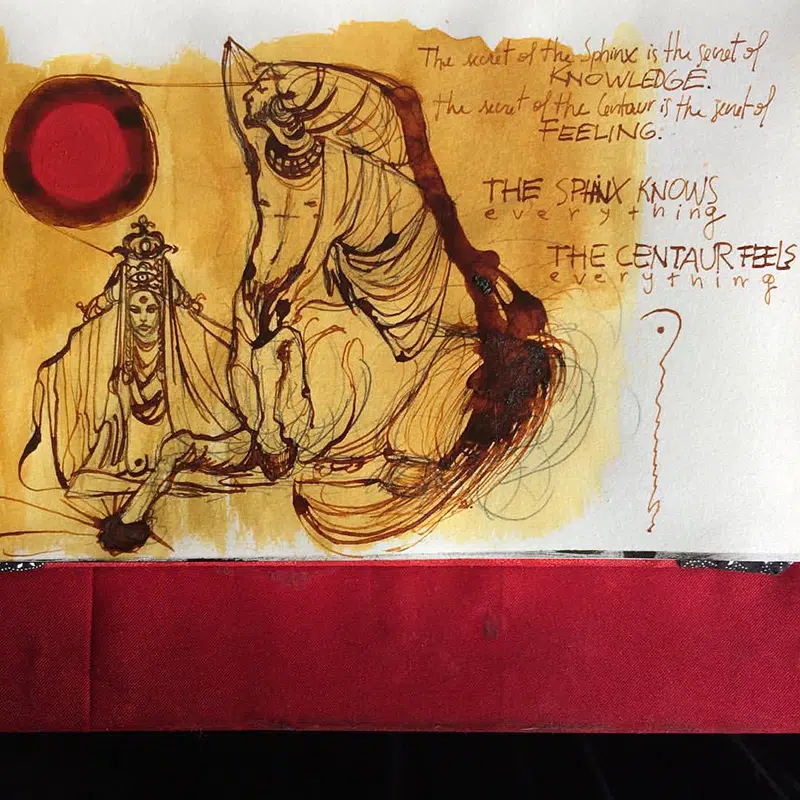 The secret of the Sphinx is the secret of
KNOWLEDGE.
the secret of the Centaur is the secret of
FEELING.
THE SPHiNX KNOWS
everything
THE CENTAUR FEELS
everything